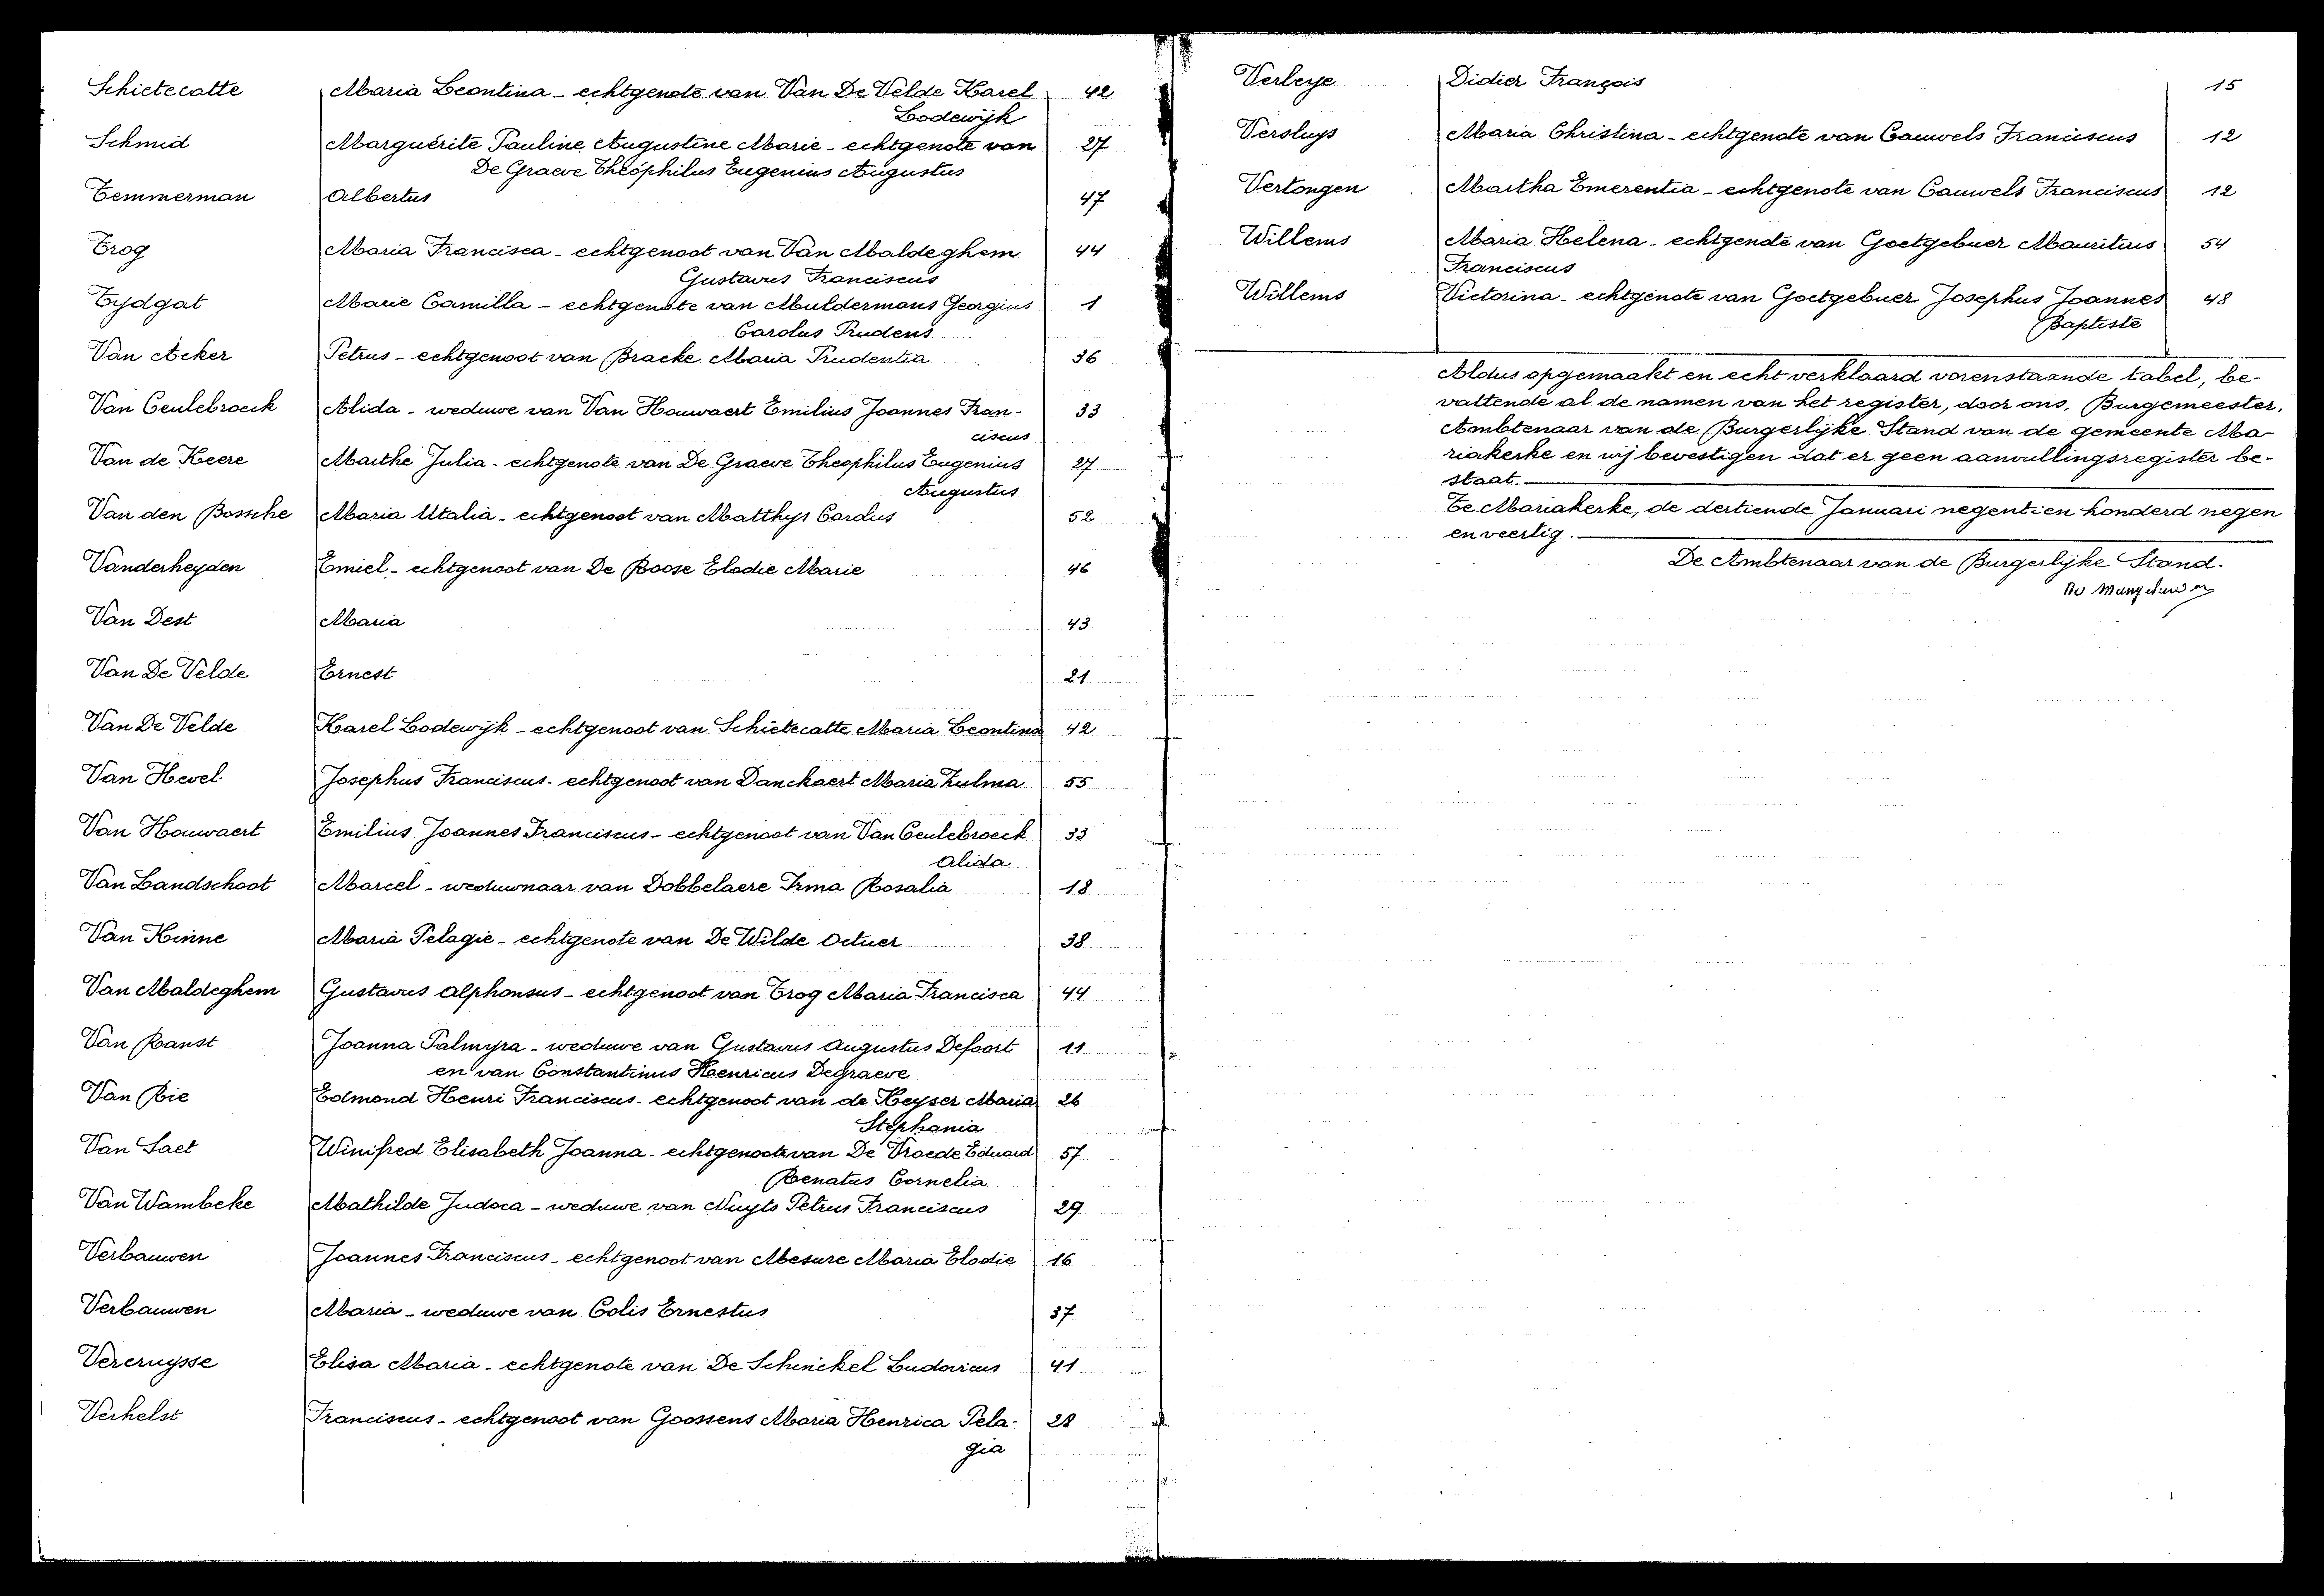 Schietecatte Maria Leontina - echtgenote van Van De Velde Karel 42
Lodewijk
Schmid Marguérite Pauline Augustine Marie - echtgenote van 27
De Graeve Théophilus Eugenius Augustus
Temmerman Albertus 47
Trog Maria Francisca - echtgenoot van Van Maldeghem 44
Gustavus Franciscus
Tydgat Marie Camilla - echtgenote van Muldermans Georgius 1
Carolus Prudens
Van Acker Petrus - echtgenoot van Bracke Maria Prudentia 36
Van Ceulebroeck Alida - weduwe van Van Houwaert Emilius Joannes Fran- 33
ciscus
Van de Keere Marthe Julia - echtgenote van De Graeve Theophilus Eugenius 27
Augustus
Van den Bossche Maria Utalia - echtgenoot van Matthys Carolus 52
Vanderheyden Emiel - echtgenoot van De Roose Elodie Marie 46
Van Dest Maria 43
Van De Velde Ernest 21
Van De Velde Karel Lodewijk - echtgenoot van Schietecatte Maria Leontina 42
Van Hevel Josephus Franciscus - echtgenoot van Danckaert Maria Zulma 55
Van Houwaert Emilius Joannes Franciscus - echtgenoot van Van Ceulebroeck 33
Alida
Van Landschoot Marcel - weduwnaar van Dobbelaere Irma Rosalia 18
Van Hinne Maria Pelagie - echtgenote van De Wilde 38
Van Maldeghem Gustavus Alphonsus - echtgenoot van Trog Maria Francisca 44
Van Ranst Joanna Palmyra - weduwe van Gustavus Augustus Defoort 11
en van Constantinus Henricus Degraeve
Van Rie Edmond Henri Franciscus - echtgenoot van de Keyser Maria 26
Stephania
Van Saet Winifred Elisabeth Joanna - echtgenoote van De Vroede Eduard 57
Renatus Cornelia
Van Wambeke Mathilde Judoca - weduwe van Nuyts Petrus Franciscus 29
Verbauwen Joannes Franciscus - echtgenoot van Mesure Maria Elodie 16
Verbauwen Maria - weduwe van Colis Ernestus 37
Vercruysse Elisa Maria - echtgenote van De Schinckel Ludovicus 41
Verhelst Franciscus - echtgenoot van Goossens Maria Henrica Pela- 28
gia
Verleye Didier François 15
Versluys Maria Christina - echtgenote van Cauwels Franciscus 12
Vertongen Martha Emerentia - echtgenote van Cauwels Franciscus 12
Willems Maria Helena - echtgenote van Goetgebuer Mauritius 54
Franciscus
Willems Victorina - echtgenote van Goetgebuer Josephus Joannes 48
Baptiste
Aldus opgemaakt en echt verklaard vorenstaande tabel, be-
vattende al de namen van het register, door ons, Burgemeester,
Ambtenaar van de Burgerlijke Stand van de gemeente Ma-
riakerke en wij bevestigen dat er geen aanvullingsregister be-
staat.
Te Mariakerke, de dertiende Januari negentien honderd negen
en veertig.
De Ambtenaar van de Burgerlijke Stand.